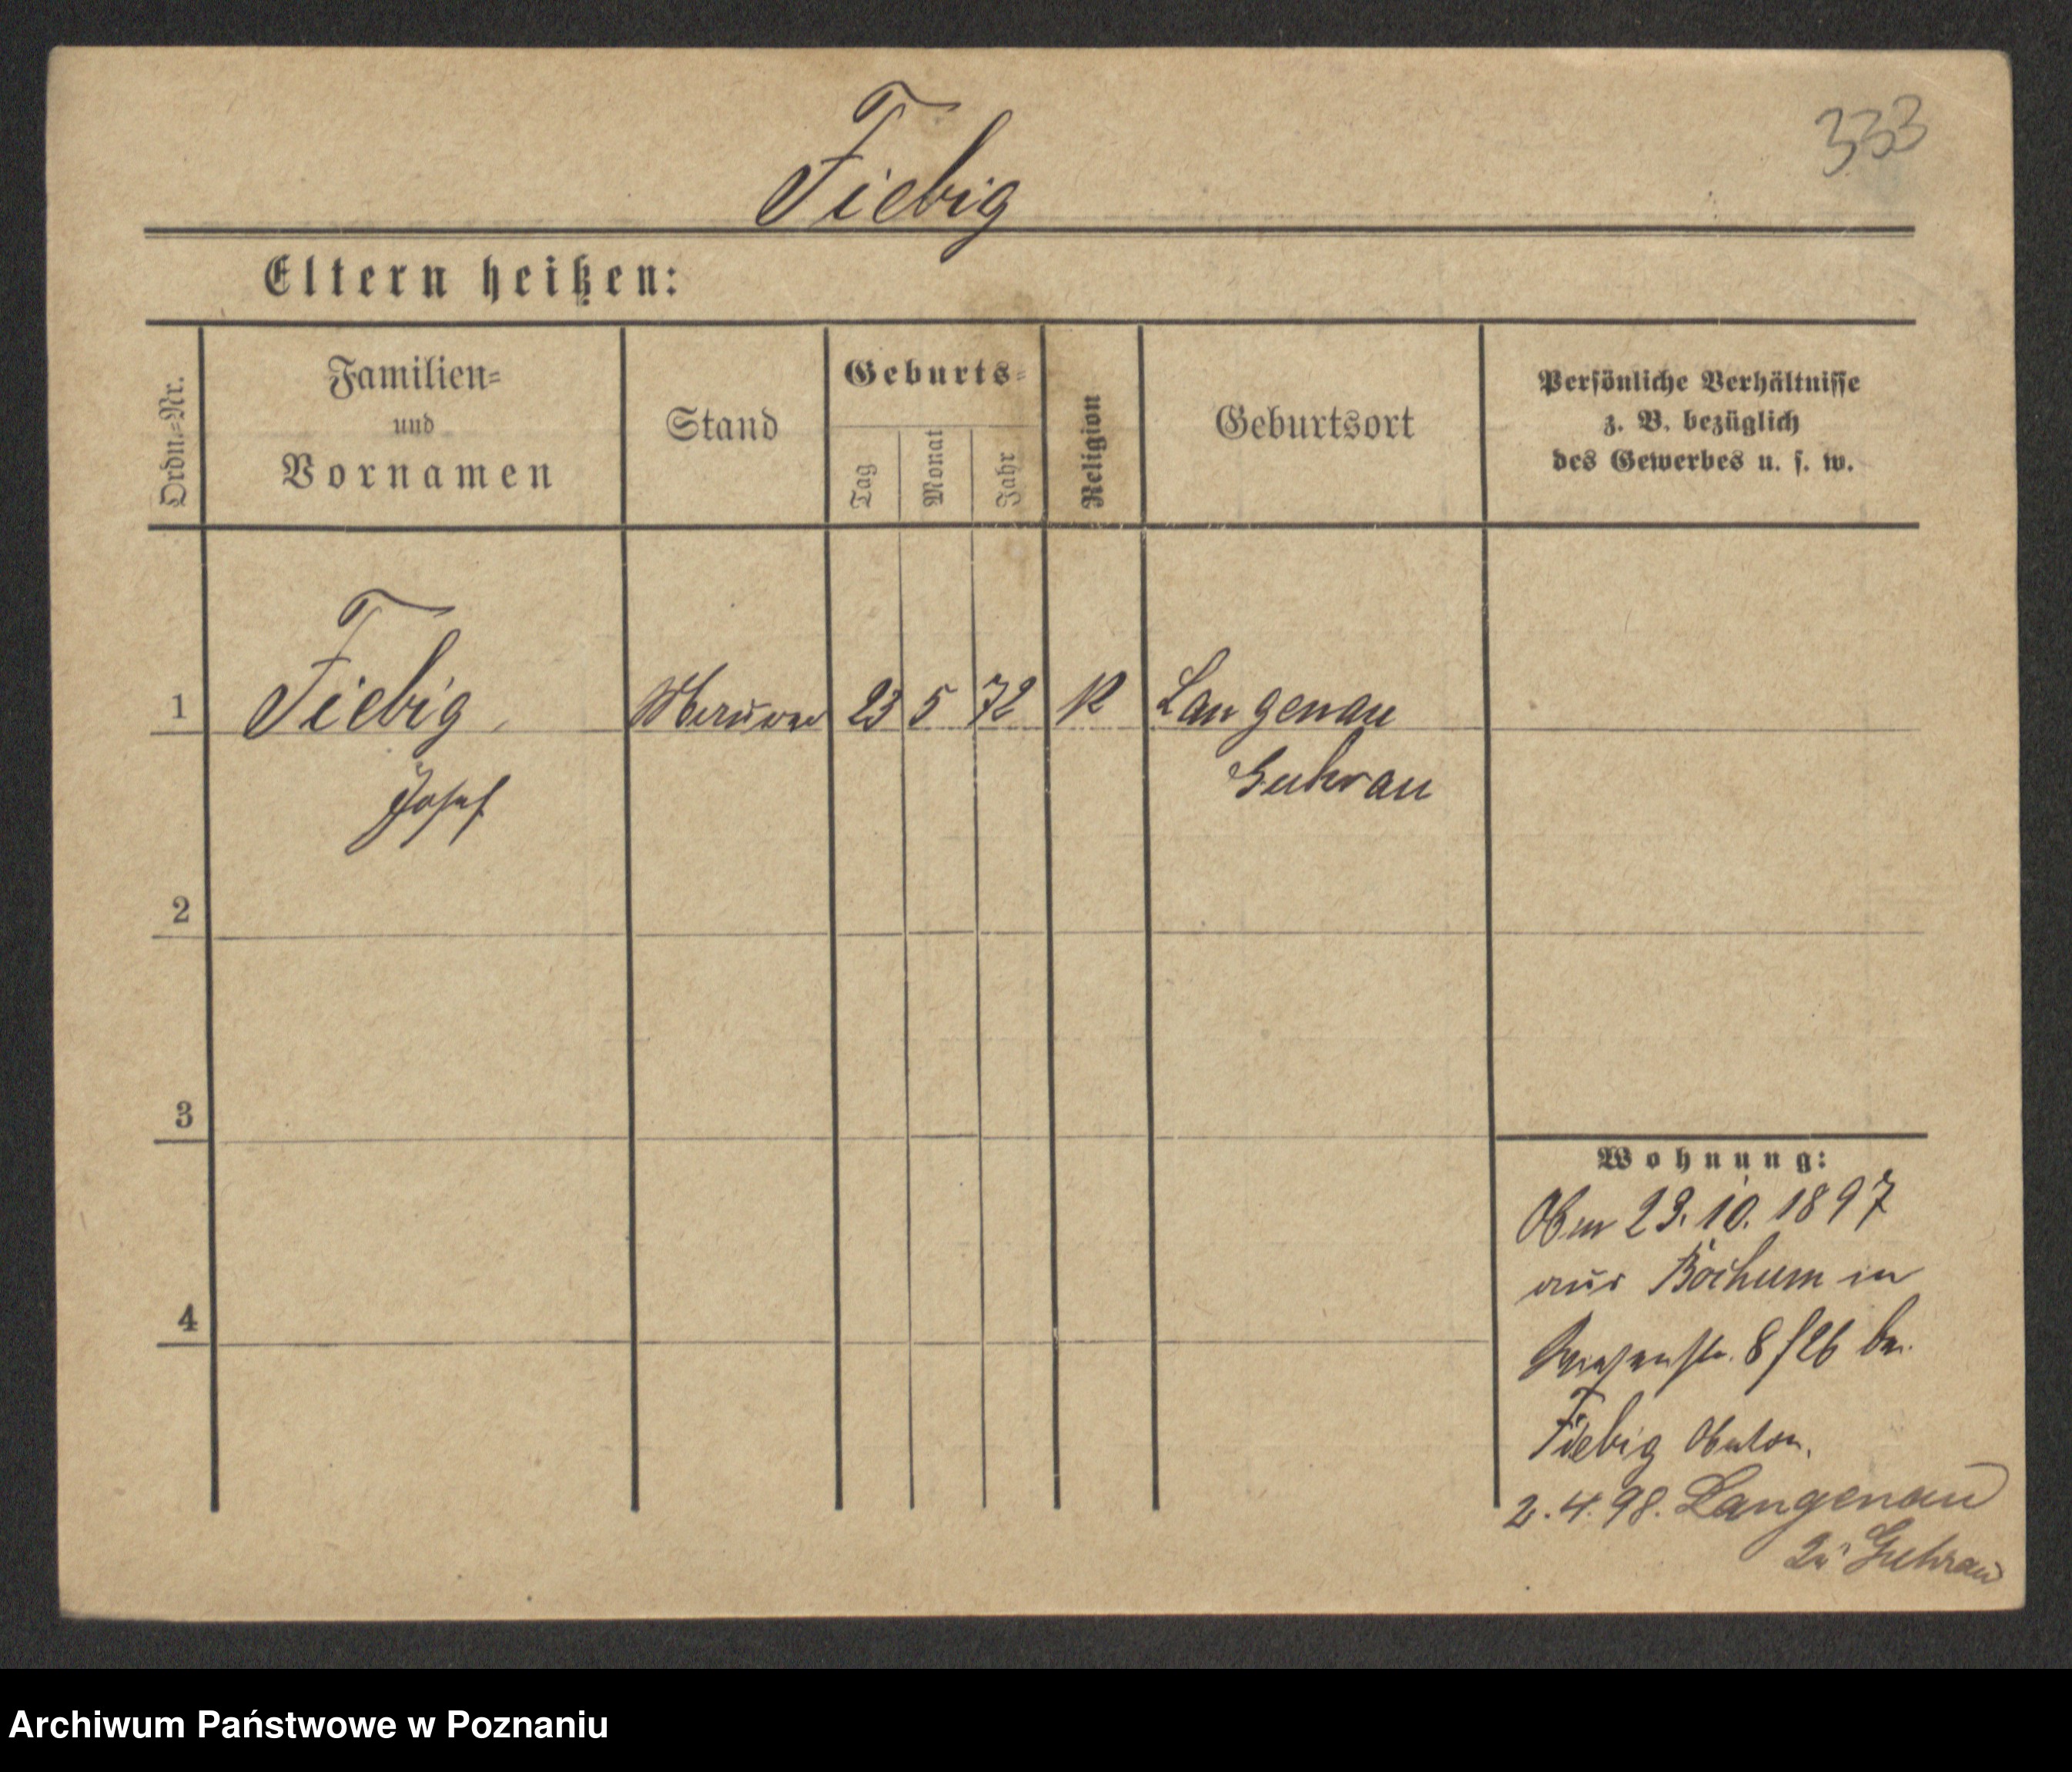 Fiebig
333
Eltern heißen:
Ordn.=Nr.
Familien=
und
Vornamen
Stand
Geburts=
Tag
Monat
Jahr
Religion
Geburtsort
Persönliche Verhältnisse
z. B. bezüglich
des Gewerbes u. s. w.
1
Fiebig
Maurer
23
5
72
K
Langenau
Josef
Guhrau
2
3
4
Wohnung:
23. 10. 1897
aus Bochum in
8 bei
Fiebig
2. 4. 98. Langenau
Guhrau
Archiwum Państwowe w Poznaniu